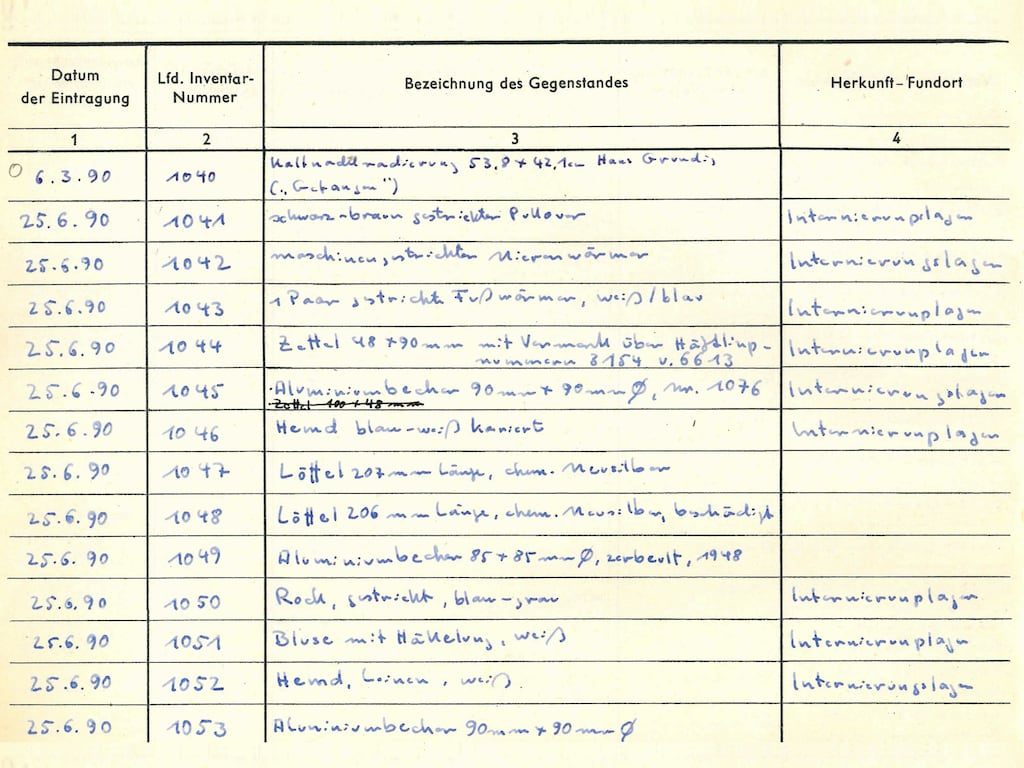 Datum der Eintragung | Lfd. Inventar-Nummer | Bezeichnung des Gegenstandes | Herkunft-Fundort
1 | 2 | 3 | 4
6.3.90 1040 Kaltnadelradierung 53,8 x 42,1cm Hans Grundig
("Gefangen")
25.6.90 1041 schwarz-braun gestrickter Pullover Internierungslager
25.6.90 1042 maschinengestrickter Nierenwärmer Internierungslager
25.6.90 1043 1 Paar gestrickte Fußwärmer, weiß/blau Internierungslager
25.6.90 1044 Zettel 48 x 90 mm mit Vermerk über Häftlings- Internierungslager
nummern 3154 u. 6613
25.6.90 1045 Aluminiumbecher 90mm x 90mm Ø, Nr. 1076 Internierungslager
Zettel 100 x 48 mm
25.6.90 1046 Hemd blau-weiß kariert Internierungslager
25.6.90 1047 Löffel 207 mm Länge, chem. Neusilber
25.6.90 1048 Löffel 206 mm Länge, chem. Neusilber, beschädigt
25.6.90 1049 Aluminiumbecher 85 x 85 mm Ø, zerbeult, 1948
25.6.90 1050 Rock, gestrickt, blau-grau Internierungslager
25.6.90 1051 Bluse mit Häkelung, weiß Internierungslager
25.6.90 1052 Hemd, Leinen, weiß Internierungslager
25.6.90 1053 Aluminiumbecher 90mm x 90mm Ø